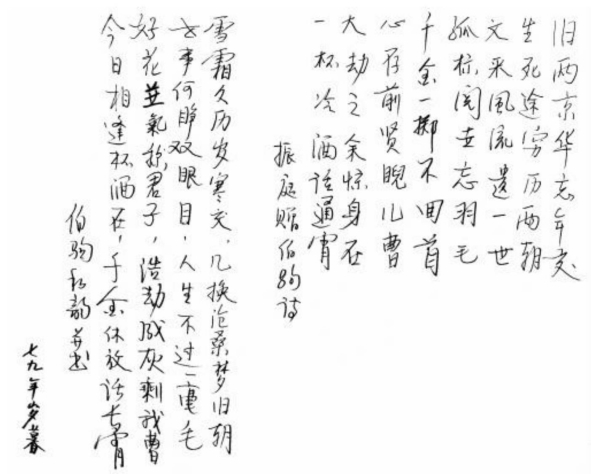 旧雨京华忘年交
生死途穷历两朝
文采风流遗一世
孤标阅世忘羽毛
千金一掷不回首
心存前贤睨儿曹
大劫之余惊身在
一杯冷酒话通宵
振庭赠伯驹诗
雪霜久历岁寒交，几换沧桑梦旧朝
世事何睁双眼目，人生不过一毫毛
好花並氣称君子，浩劫成灰剩我曹
今日相逢杯酒在，千金休放话长宵
伯驹和韵并书
七九年岁暮